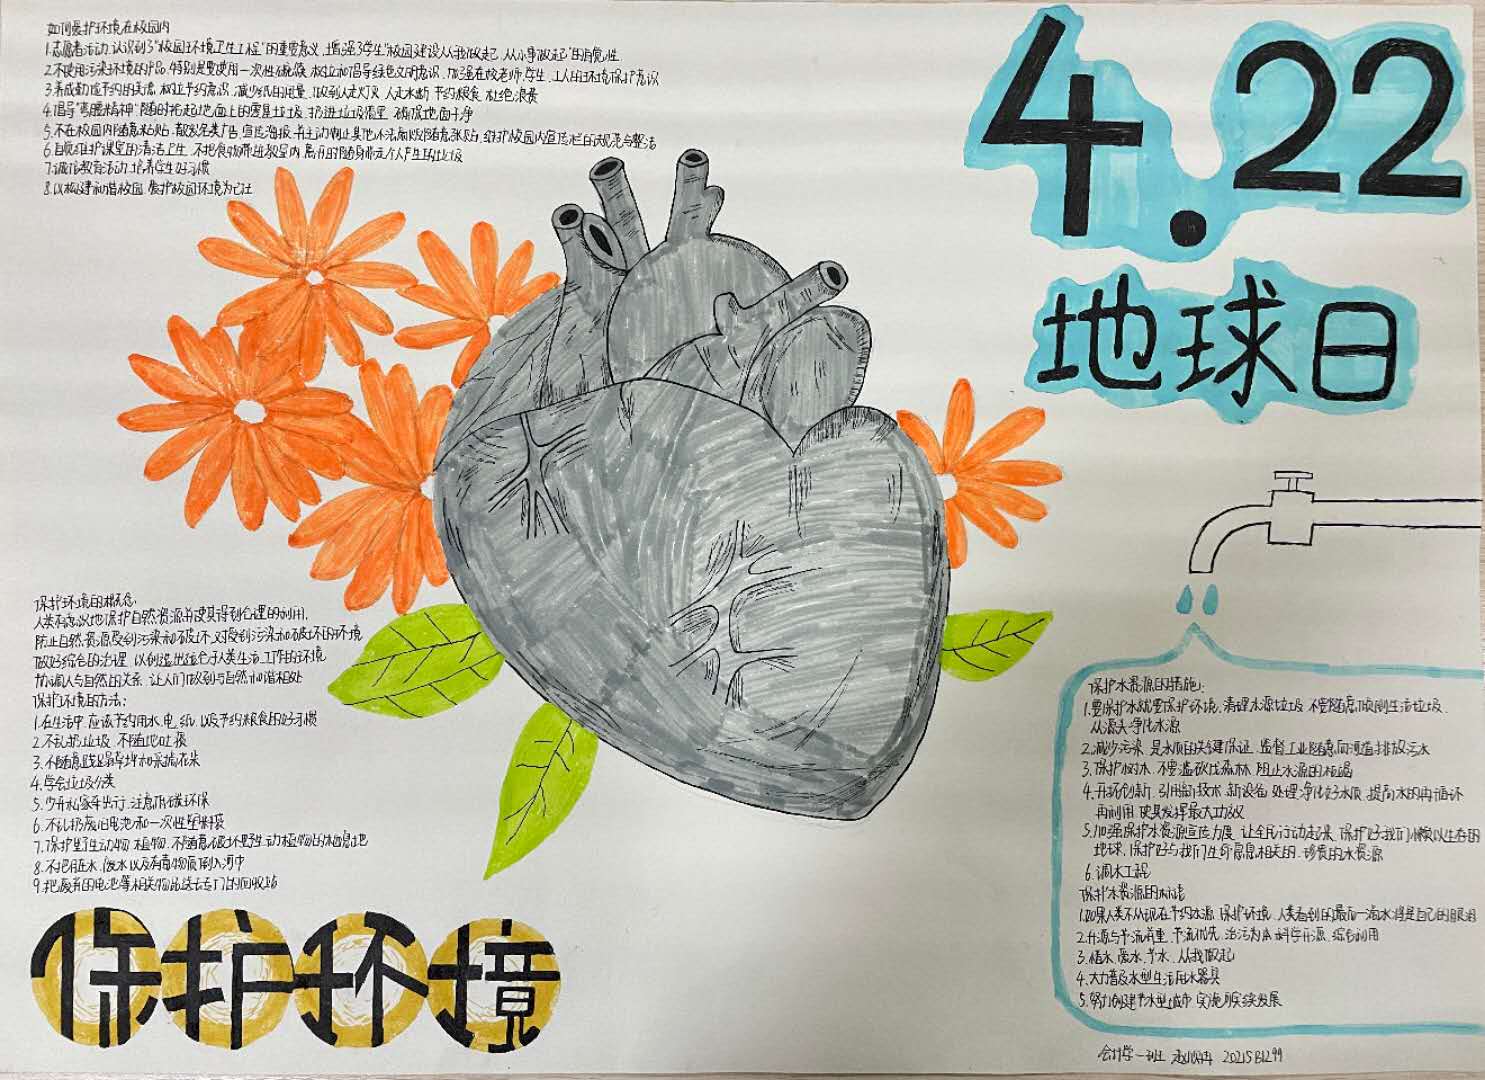 如何爱护环境在校园内
1.志愿者活动,认识到了"校园环境卫生工程"的重要意义,增强了学生"校园建设从我做起,从小事做起"的自觉性
2.不使用污染环境的产品,特别是要使用一次性碗筷,树立和倡导绿色文明意识,加强在校老师,学生,工人的环境保护意识
3.养成勤俭节约的美德,树立节约意识,减少纸的用量,做到人走灯灭,人走水断,节约粮食,杜绝浪费
4.倡导"弯腰精神"随时捡起地面上的零星垃圾,扔进垃圾桶里,确保地面干净
5.不在校园内随意粘贴,散发各类广告,宣传海报,并主动制止其他
6.自觉维护课堂的清洁卫生,不把食物带进教室内,离开时随身带走个人产生的垃圾
7.诚信教育活动,培养学生好习惯
8.以构建和谐校园,爱护校园环境为己任
4.22
地球日
保护环境的概念:
人类有意识地保护自然资源并使其得到合理的利用,
防止自然资源受到污染和破坏,对受到污染和破坏的环境
做好综合的治理,以创造出适合于人类生活、工作的环境
协调人与自然的关系,让人们做到与自然和谐相处
保护环境的方法:
1.在生活中,应该节约用水,电,纸,以及节约粮食的好习惯
2.不乱扔垃圾,不随地吐痰
3.不随意践踏草坪和采摘花朵
4.学会垃圾分类
5.少开私家车出行,注意低碳环保
6.不乱扔废旧电池和一次性塑料袋
7.保护野生动物,植物,不随意破坏野生动植物的栖息地
8.不把脏水,废水以及有毒物质倒入河中
9.把废弃的电池等相关物品送去专门的回收站
保护环境
保护水资源的措施:
1.要保护水就要保护环境,清理水源垃圾,不要随意倾倒生活垃圾,
从源头净化水源
2.减少污染,是水质的关键保证,监督工业随意向河道排放污水
3.保护树木,不要滥砍伐森林,阻止水源的枯竭
4.开拓创新,引用新技术,新设备,处理净化好水质,提高水的再循环
再利用,使其发挥最大功效
5.加强保护水资源宣传力度,让全民行动起来,保护好我们赖以生存的
地球,保护好与我们生命息息相关的,珍贵的水资源
6.调水工程
保护水资源的标语
1.如果人类不从现在节约水源,保护环境,人类看到的最后一滴水将是自己的眼泪
2.开源与节流并重,节流优先,治污为本,科学开源,综合利用
3.惜水,爱水,节水,从我做起
4.大力普及节水型生活用水器具
5.努力创建节水型城市,实施可持续发展
会计学一班 2021581299